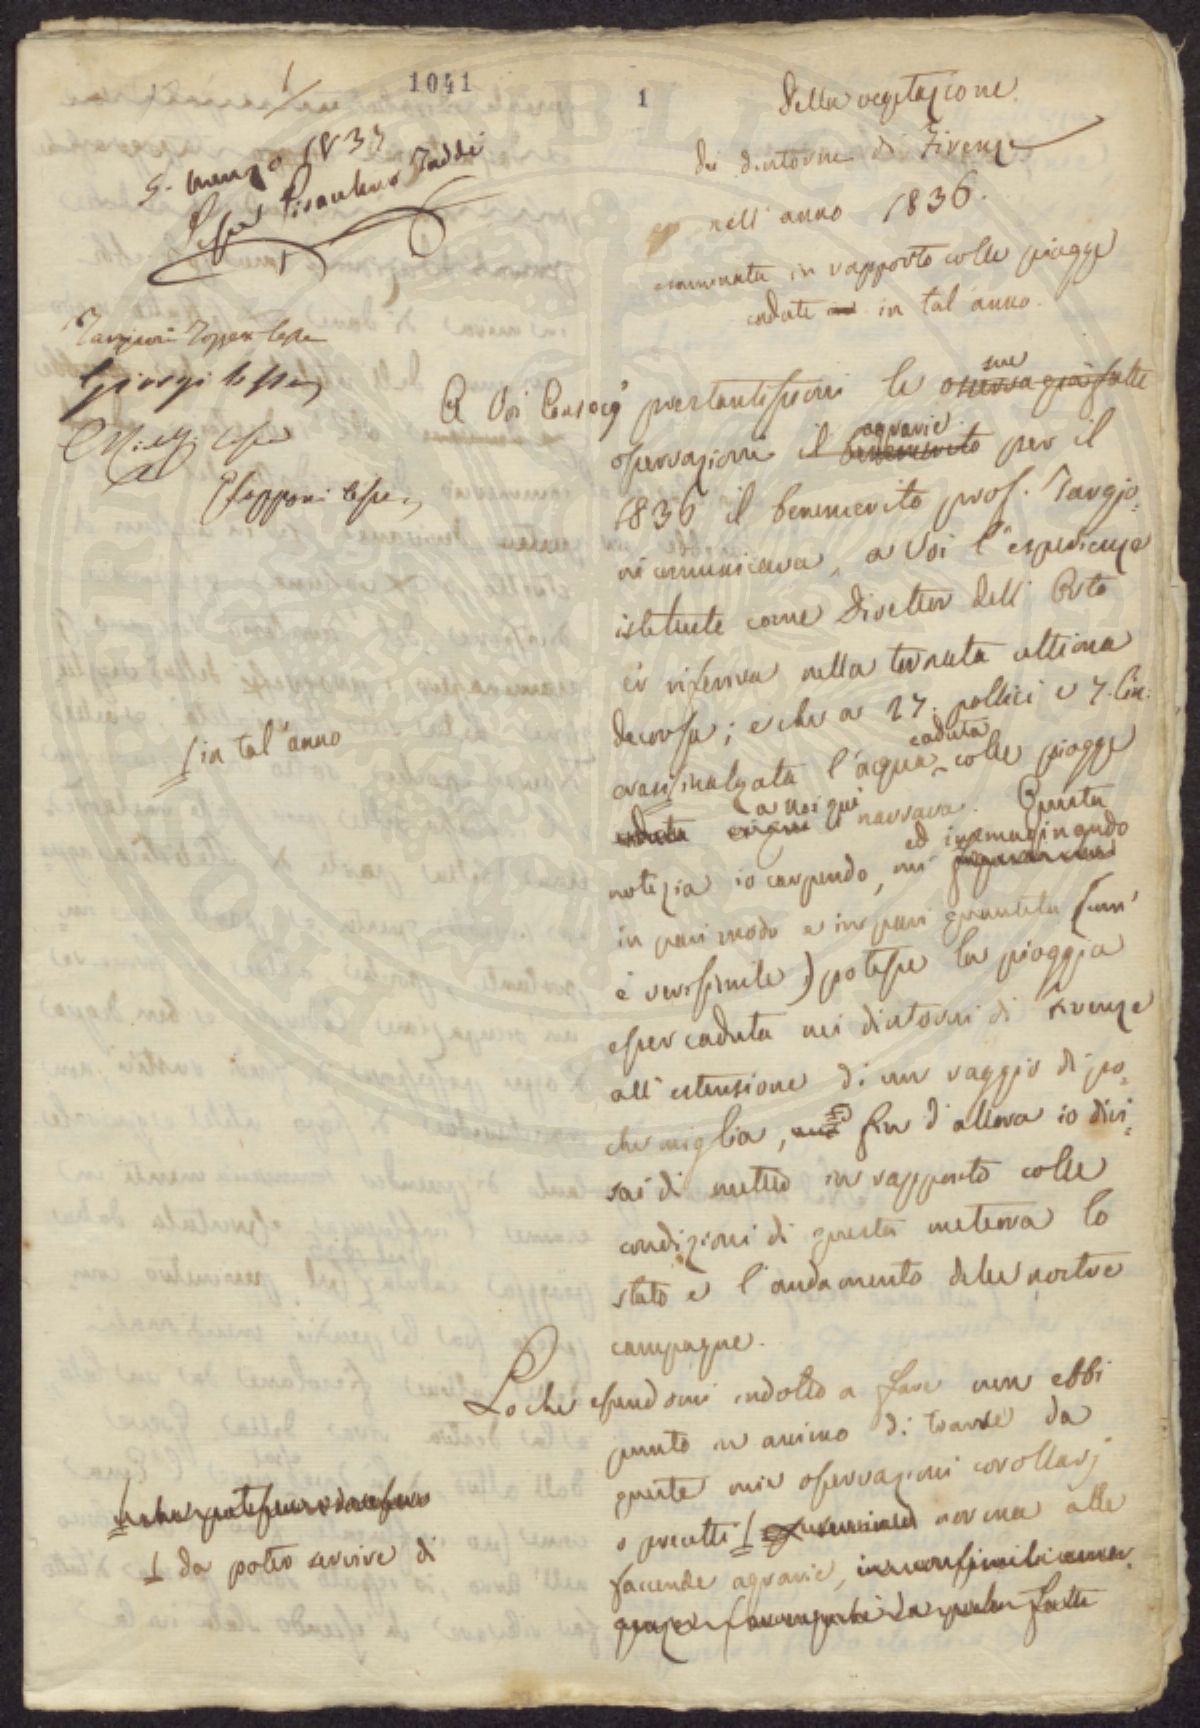 1041
1
5. marzo 1837
Della vegetazione
dei dintorni di Firenze
nell'anno 1836.
esaminata in rapporto colle piogge
cadute in tal'anno.
Targioni Tozzetti
Giorgi
A Voi Consocj prestantissimi le sue
osservazioni agrarie per il
1836 il benemerito prof. Targio-
ni comunicava, a Voi l'esperienze
istituite come Direttor dell'Orto
ei riferiva nella tornata ultima
decorsa; e che a 27. pollici e 7. lin.
erasi inalzata l'acqua caduta colle piogge
/in tal'anno
a noi qui narrava. Questa
notizia io carpendo, ed immaginando
in pari modo e in pari quantità (com'
è verisimile) potesse la pioggia
esser caduta nei dintorni di Firenze
all'estensione di un raggio di po-
che miglia, fin d'allora io divi-
sai di metter in rapporto colle
condizioni di questa meteora lo
stato e l'andamento delle nostre
campagne.
Lo che essendomi indotto a fare non ebbi
punto in animo di trarre da
queste mie osservazioni corollarj
o precetti / norma alle
faccende agrarie,
/ da poter servire di